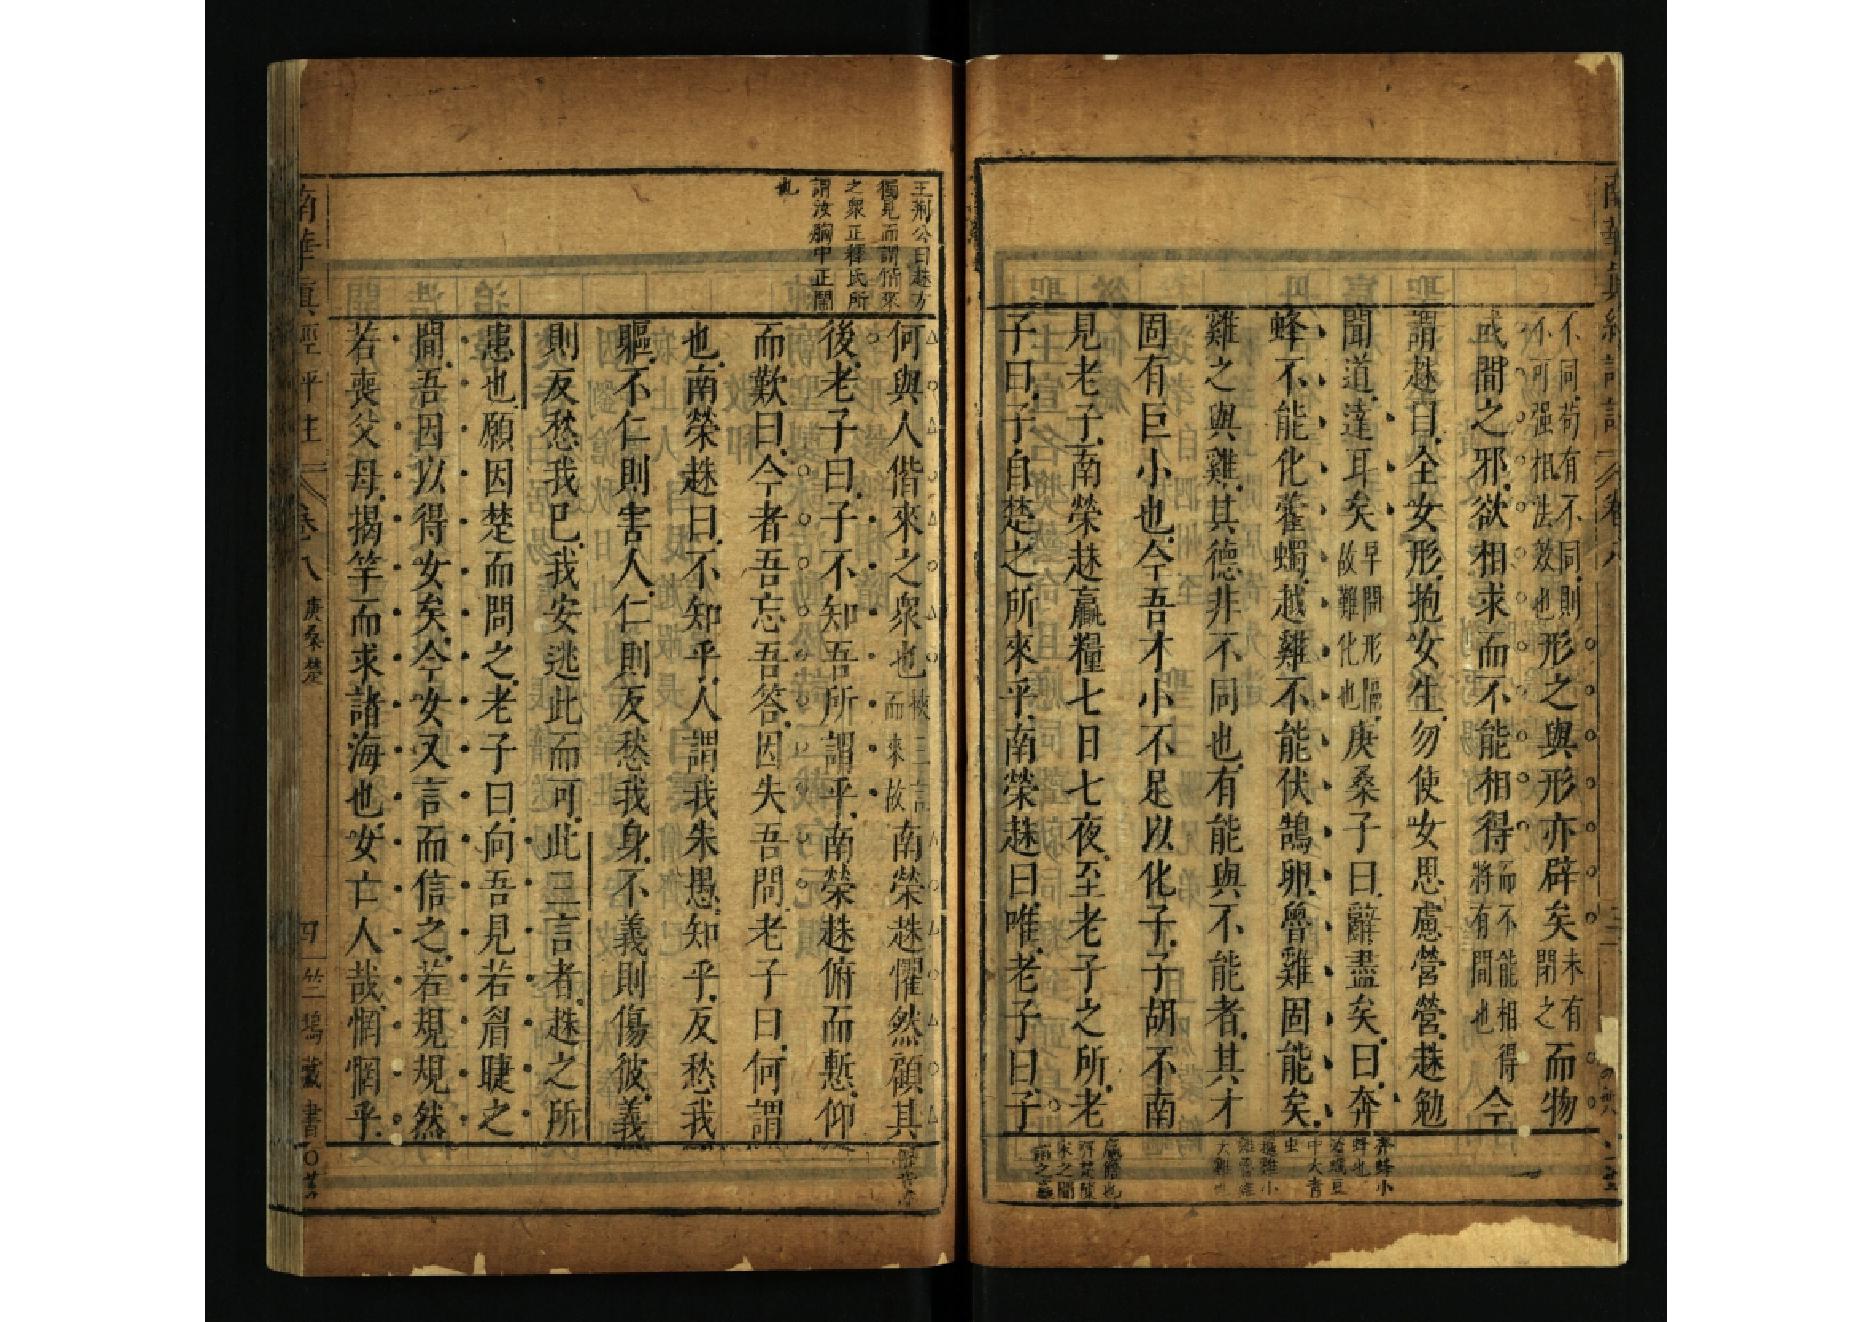 不同苟有不同則
不可强相法效也
形之與形亦辟矣
未有
閉之
而物
或間之邪欲相求而不能相得
而不能相得
將有間也
今
謂趎曰全女形抱女生勿使女思慮營營趎勉
聞道達耳矣
早聞形隔
故難化也
庚桑子曰辭盡矣曰奔
蜂不能化藿蠋越雞不能伏鵠卵魯雞固能矣
雞之與雞其德非不同也有能與不能者其才
固有巨小也今吾才小不足以化子子胡不南
見老子南榮趎贏糧七日七夜至老子之所老
子曰子自楚之所來乎南榮趎曰唯老子曰子
奔蜂小
蜂也
藿蠋豆
中大青
虫
越雞小
雞魯雞
大雞也
何與人偕來之衆也
挾三言
而來故
南榮趎懼然顧其
後老子曰子不知吾所謂乎南榮趎俯而慙仰
而歎曰今者吾忘吾答因失吾問老子曰何謂
也南榮趎曰不知乎人謂我朱愚知乎反愁我
軀不仁則害人仁則反愁我身不義則傷彼義
則反愁我已我安逃此而可此三言者趎之所
患也願因楚而問之老子曰向吾見若眉睫之
間吾因以得女矣今女又言而信之若規規然
若喪父母揭竿而求諸海也女亡人哉惘惘乎
王荊公曰趎方
獨見而謂偕來
之衆正釋氏所
謂汝胸中正鬧
也
南華真經評註
卷八
庚桑楚
四
竺塢藏書